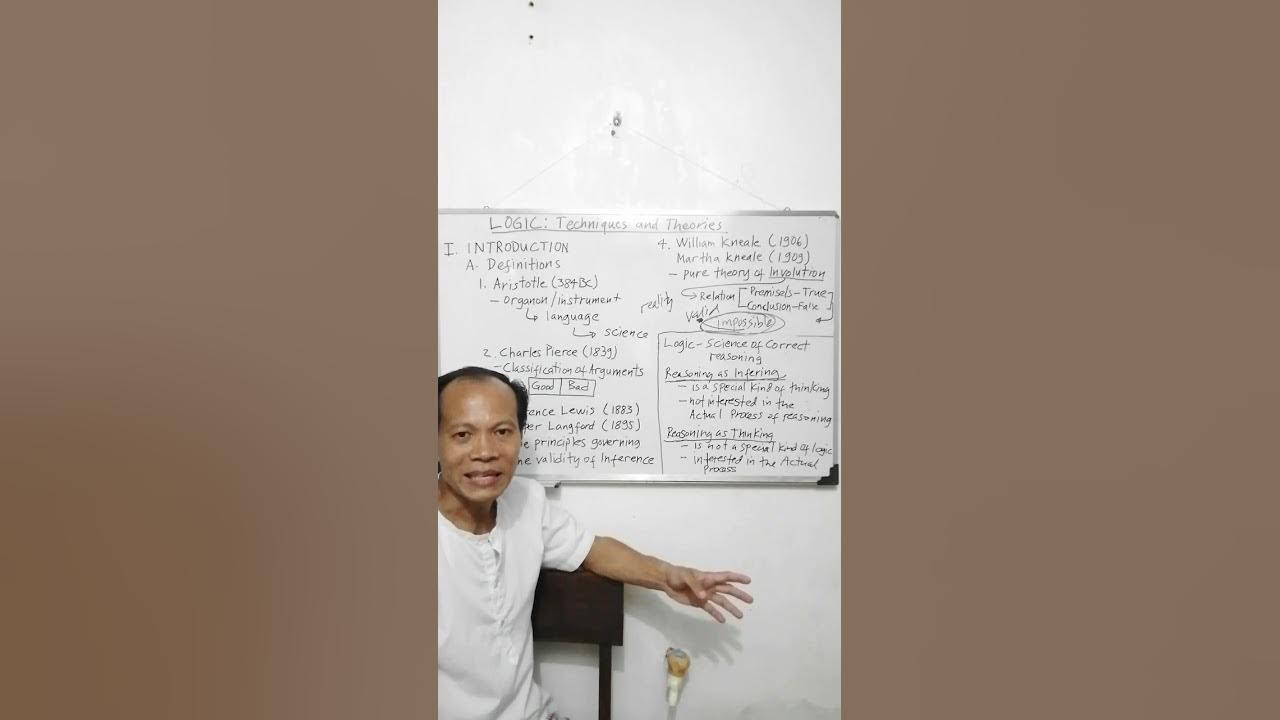 LOGIC: Techniques and Theories
I. INTRODUCTION
A. Definitions
1. Aristotle (384BC)
- Organon/instrument
language
science
2. Charles Pierce (1839)
- Classification of Arguments
Good Bad
Lewis (1883)
Langford (1895)
principles governing
validity of Inference
4. William Kneale (1906)
Martha Kneale (1909)
- pure theory of Involution
reality
Relation Premises-True
Conclusion-False
Valid
impossible
Logic - Science of Correct
reasoning
Reasoning as Infering
- is a special kind of thinking
- not interested in the
Actual Process of reasoning
Reasoning as Thinking
- is not a special kind of logic
- interested in the Actual
Process